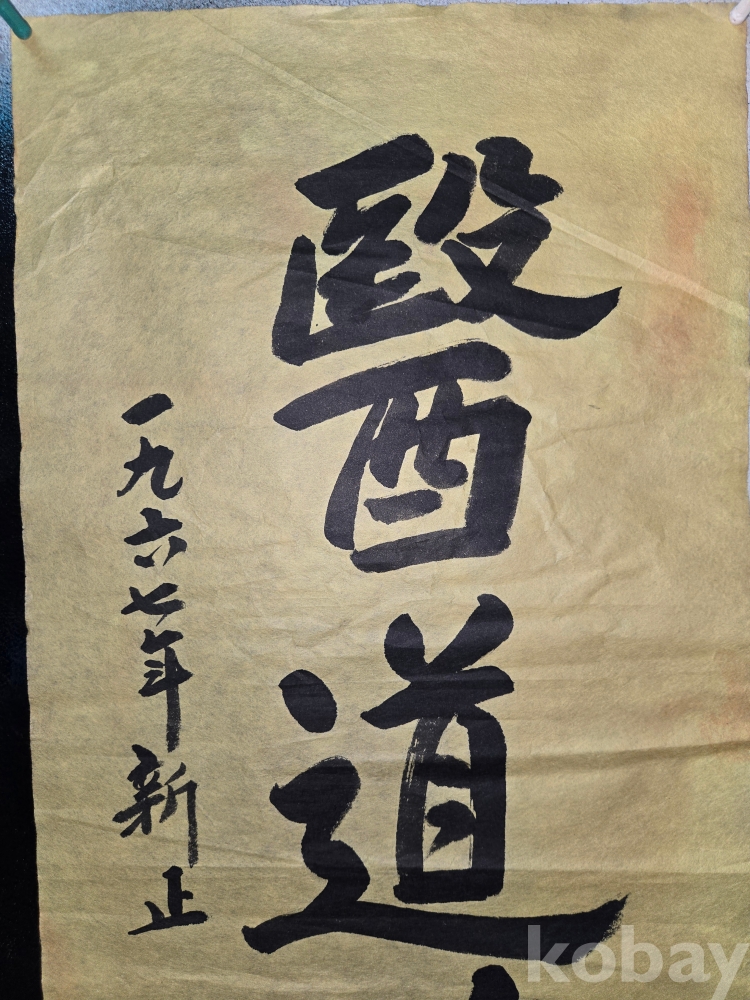 醫道
一九六七年新正
kobay